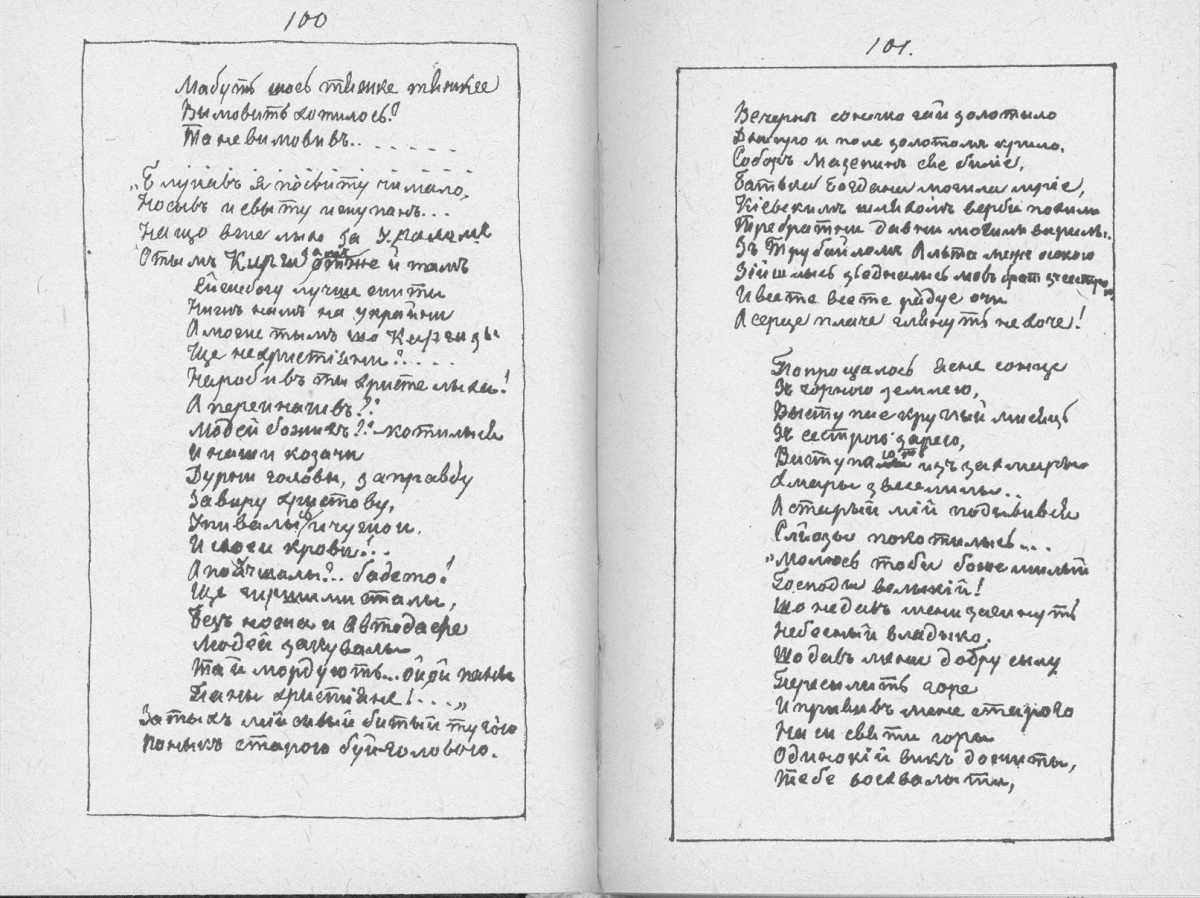 100
Мабуть шось тяжке тяжкее
Вымовить хотилось?
Та не вимовивъ.. . . . . .
„Блукавъ я по свиту чимало,
Носывъ и свыту и жупанъ...
На що вже лыхо за Ураломъ
Отымъ Киргизамъ отже й тамъ
Ейжебогу лучше жити
Нижъ намъ на украини
А може тымъ що Киргизы
Ще не христіяни?. . . .
Наробивъ ты христе лыха!
А переиначивъ?!
Людей божихъ?! котилися
И наши козачи
Дурни головы, за правду
За виру христову,
Упивалысь и чужои
И своеи крови!..
А получшалы?.. ба де то!
Ще гиршими сталы,
Безъ ножа и автодафе
Людей закувалы
Та й мордують... ой ой паны
Паны христіяне!. . . „
Затыхъ мій сивый битый тугою
Поныкъ старою буй головою.
101.
Вечерне сонечко гай золотыло
Днипро и поле золотомъ крыло.
Соборъ Мазепинъ сяе биліе,
Батька Богдана могила мріе,
Кіевскимъ шляхомъ верби похили
Трибратни давни могили вкрили.
Зъ Трубайломъ Альта меже осокою
Зійшлись зъеднались мовъ братъ зъ сестрою
И все те все те радуе очи
А серце плаче глянуть не хоче!
Попрощалось ясне сонце
Зъ чорною землею,
Выступае круглый мисяць
Зъ сестрою зарею,
Виступають изъ за хмары
Хмары звеселилы..
А старый мій подывився
Слйозы покотилысь...
„Молюсь тоби боже милый
Господы великій!
Що не давъ мени загинуть
Небесный владыко.
Що давъ мени добру силу
Пересилить горе
И прививъ мене старого
На си святи горы
Одинокій викъ дожиты,
Тебе восхвалити,